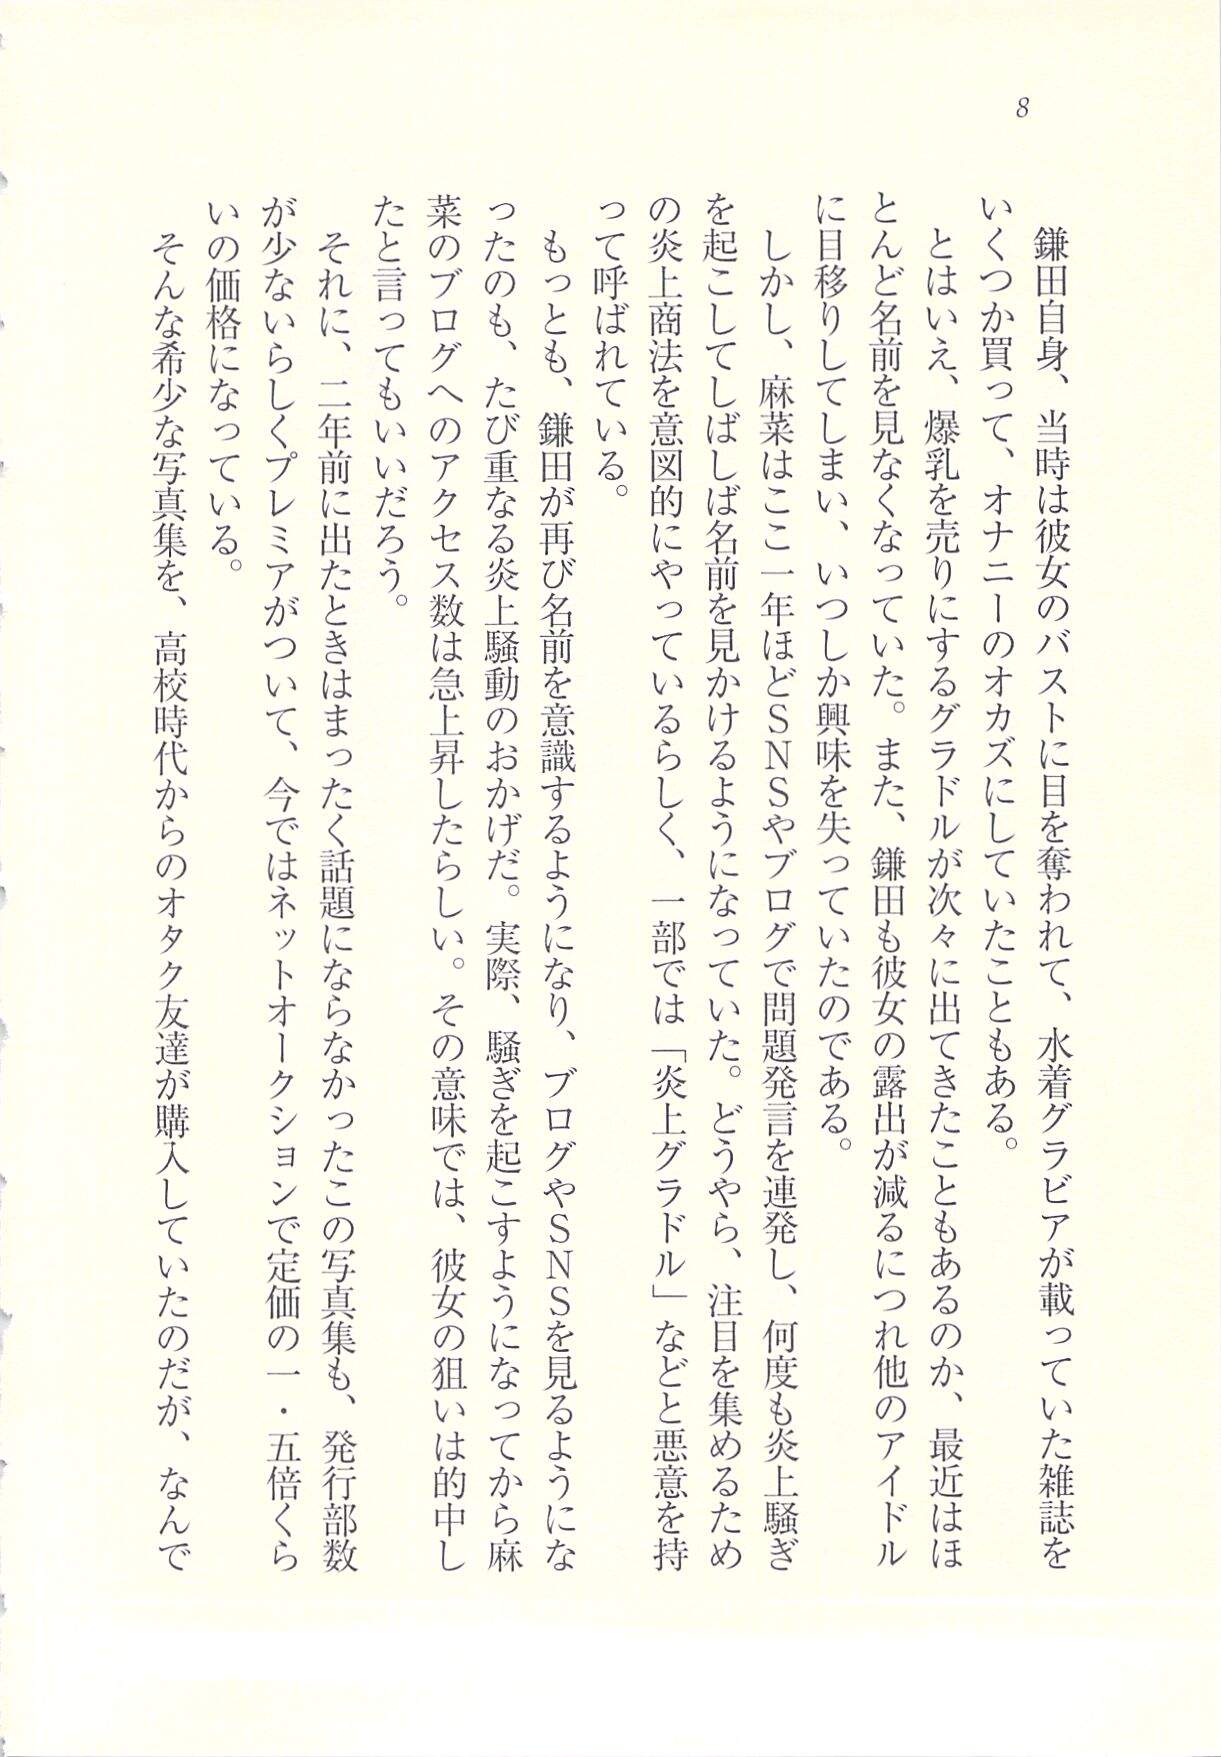 8
　鎌田自身、当時は彼女のバストに目を奪われて、水着グラビアが載っていた雑誌を
いくつか買って、オナニーのオカズにしていたこともある。
　とはいえ、爆乳を売りにするグラドルが次々に出てきたこともあるのか、最近はほ
とんど名前を見なくなっていた。また、鎌田も彼女の露出が減るにつれ他のアイドル
に目移りしてしまい、いつしか興味を失っていたのである。
　しかし、麻菜はここ一年ほどＳＮＳやブログで問題発言を連発し、何度も炎上騒ぎ
を起こしてしばしば名前を見かけるようになっていた。どうやら、注目を集めるため
の炎上商法を意図的にやっているらしく、一部では「炎上グラドル」などと悪意を持
って呼ばれている。
　もっとも、鎌田が再び名前を意識するようになり、ブログやＳＮＳを見るようにな
ったのも、たび重なる炎上騒動のおかげだ。実際、騒ぎを起こすようになってから麻
菜のブログへのアクセス数は急上昇したらしい。その意味では、彼女の狙いは的中し
たと言ってもいいだろう。
　それに、二年前に出たときはまったく話題にならなかったこの写真集も、発行部数
が少ないらしくプレミアがついて、今ではネットオークションで定価の一・五倍くら
いの価格になっている。
　そんな希少な写真集を、高校時代からのオタク友達が購入していたのだが、なんで